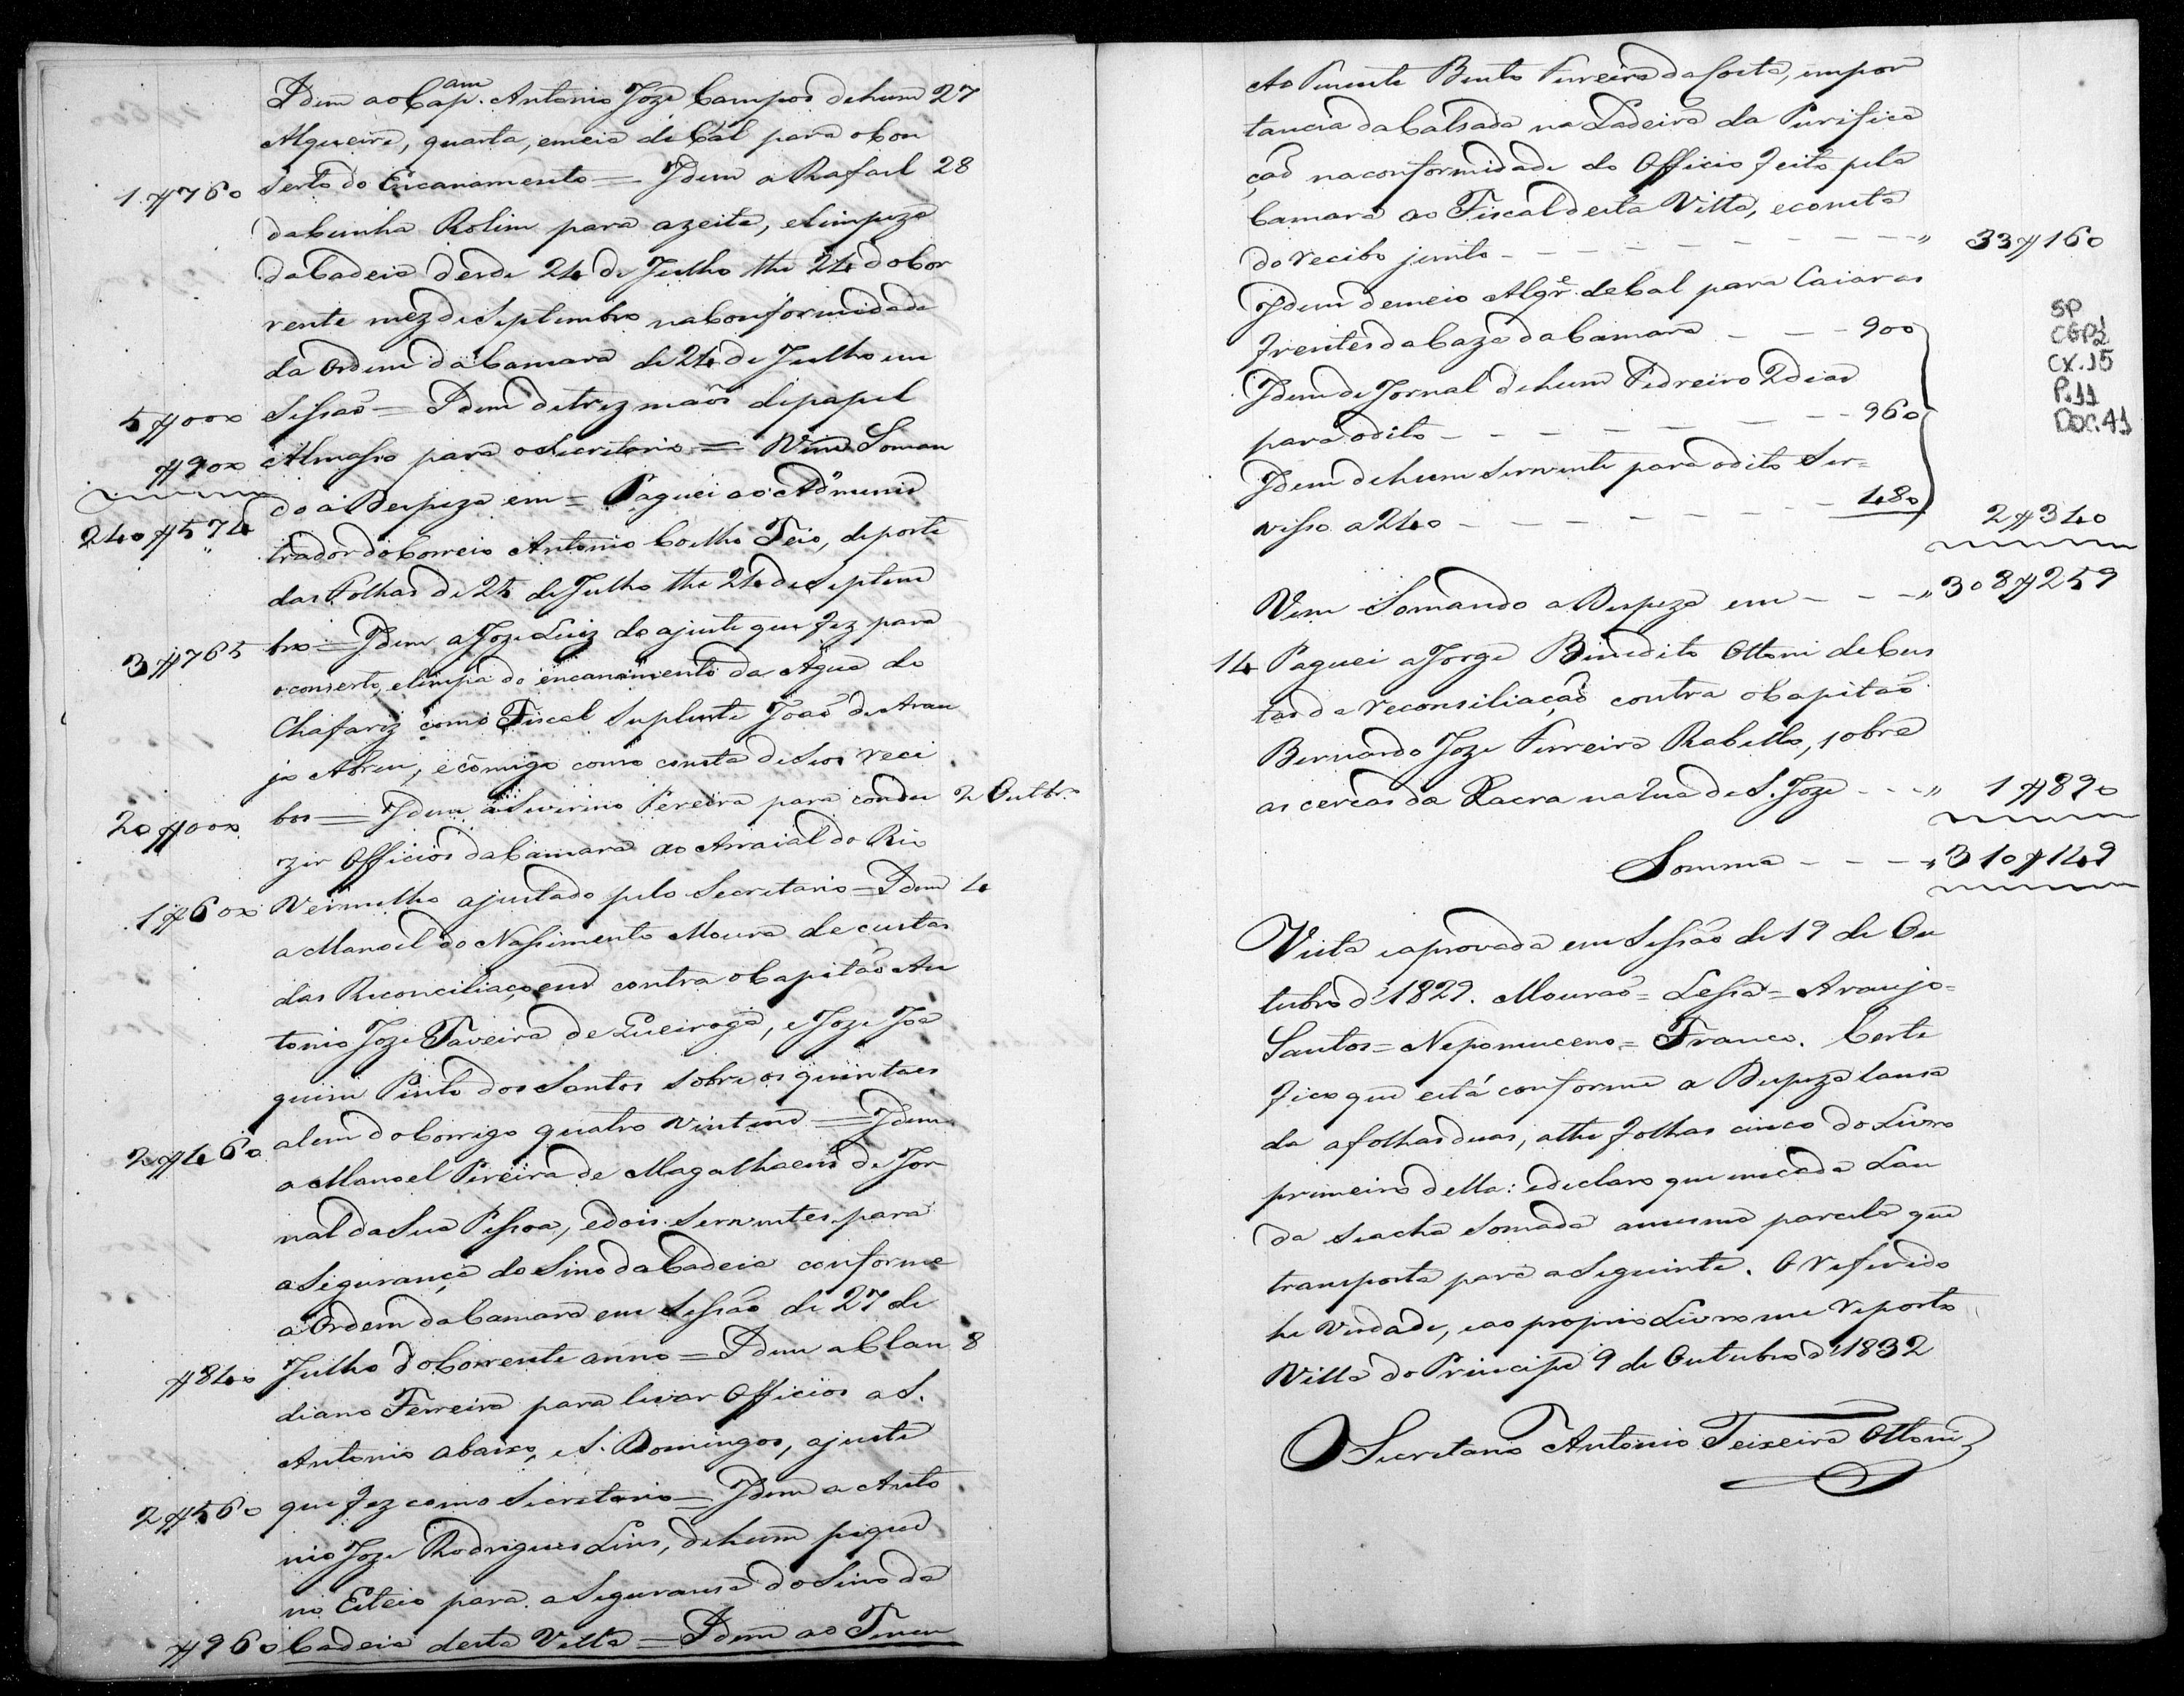 Idem ao Cap.am Antonio Joze Campos de hum 27
Alqueire, quarta, e meia de Cal para o Con
1#760 serto do Encanamento = Idem a Rafael 28
da Cunha Rolim para azeite, e limpeza
da Cadeia desde 24 de Julho the 24 do Cor
rente mez de Septembro na Conformidade
da Ordem da Camara de 24 de Julho em
5#000 Sessaõ = Idem de trez maõs de papel
#900 Almasso para o Secretario = Vem Soman
240#574 do a Despeza em = Paguei ao Adminis
trador do Correio Antonio Coelho Teio, de porte
das Folhas de 25 de Julho the 24 de Septem
3#765 bro = Idem a Joze Luiz do ajuste que fez para
o conserto, e limpa do encanamento da Agua do
Chafariz como Fiscal Suplente Joaõ de Arau
jo Abreu, e cõmigo como consta de Seos reci
20#000 bos = Idem a Severino Pereira para condu 2 Outbr.o
zir Officios da Camara ao Arraial do Rio
1#600 Vermelho ajustado pelo Secretario = Idem 4
a Manoel do Nassimento Moura de custas
das Reconciliaçoens contra o Capitaõ An
tonio Joze Taveira de Queiroga, e Joze Joa
quim Pinto dos Santos sobre os quintaes
2#460 alem do Corrigo quatro vintens = Idem
a Manoel Pereira de Magalhaens de Jor
nal da Sua Pessoa, e dois Serventes para
a Segurança do Sino da Cadeia conforme
a Ordem da Camara em Sessaõ de 27 de
#840 Julho do Corrente anno = Idem a Clau 8
diano Ferreira para levar Officios a S.
Antonio abaixo, e S. Domingos, ajuste
2#560 que fez como Secretario = Idem a Anto
nio Joze Rodrigues Lins, de hum peque
no Esteio para a Seguransa do Sino da
#960 Cadeia desta Villa = Idem ao Tenen
Ao Tenente Bento Ferreira da Costa, impor
tancia da Calsada na Ladeira da Purifica
çaõ na conformidade do Officio feito pela
Camara ao Fiscal desta Villa, e consta
do recibo junto - - - - - - - - " 33#160
Idem de meio Alqr.e de Cal para Caiar as
frentes da Caza da Camara - - - 900
Idem de Jornal de hum Pedreiro 2 dias
para o dito - - - - - - - - 960
Idem de hum Servente para o dito Ser=
visso a 240 - - - - - - - - 480 2#340
SP
CGP1
CX.15
P.11
DOC.41
Vem Somando a Despeza em - - - " 308#259
14 Paguei a Jorge Binedito Ottoni de Cus
tas da reconsiliaçaõ contra o Capitaõ
Bernardo Joze Ferreira Rabello, sobre
as cercas da Xacra na rua de S. Joze - - - " 1#890
Somma - - - " 310#149
Vista e aprovada em Sessaõ de 19 de Ou
tubro d' 1829. Mouraõ = Lessa = Araujo =
Santos = Nepomuceno = Franco. Certi
fico que está conforme a Despeza lansa
da a folhas duas, athe folhas cinco do Livro
primeiro della: e declaro que em cada Lau
da se acha Somada a mesma parcela que
transporta para a Seguinte. O Referido
he verdade, e ao proprio Livro me reporto
Villa do Principe 9 de Outubro d' 1832
O Secretario Antonio Teixeira Ottoni